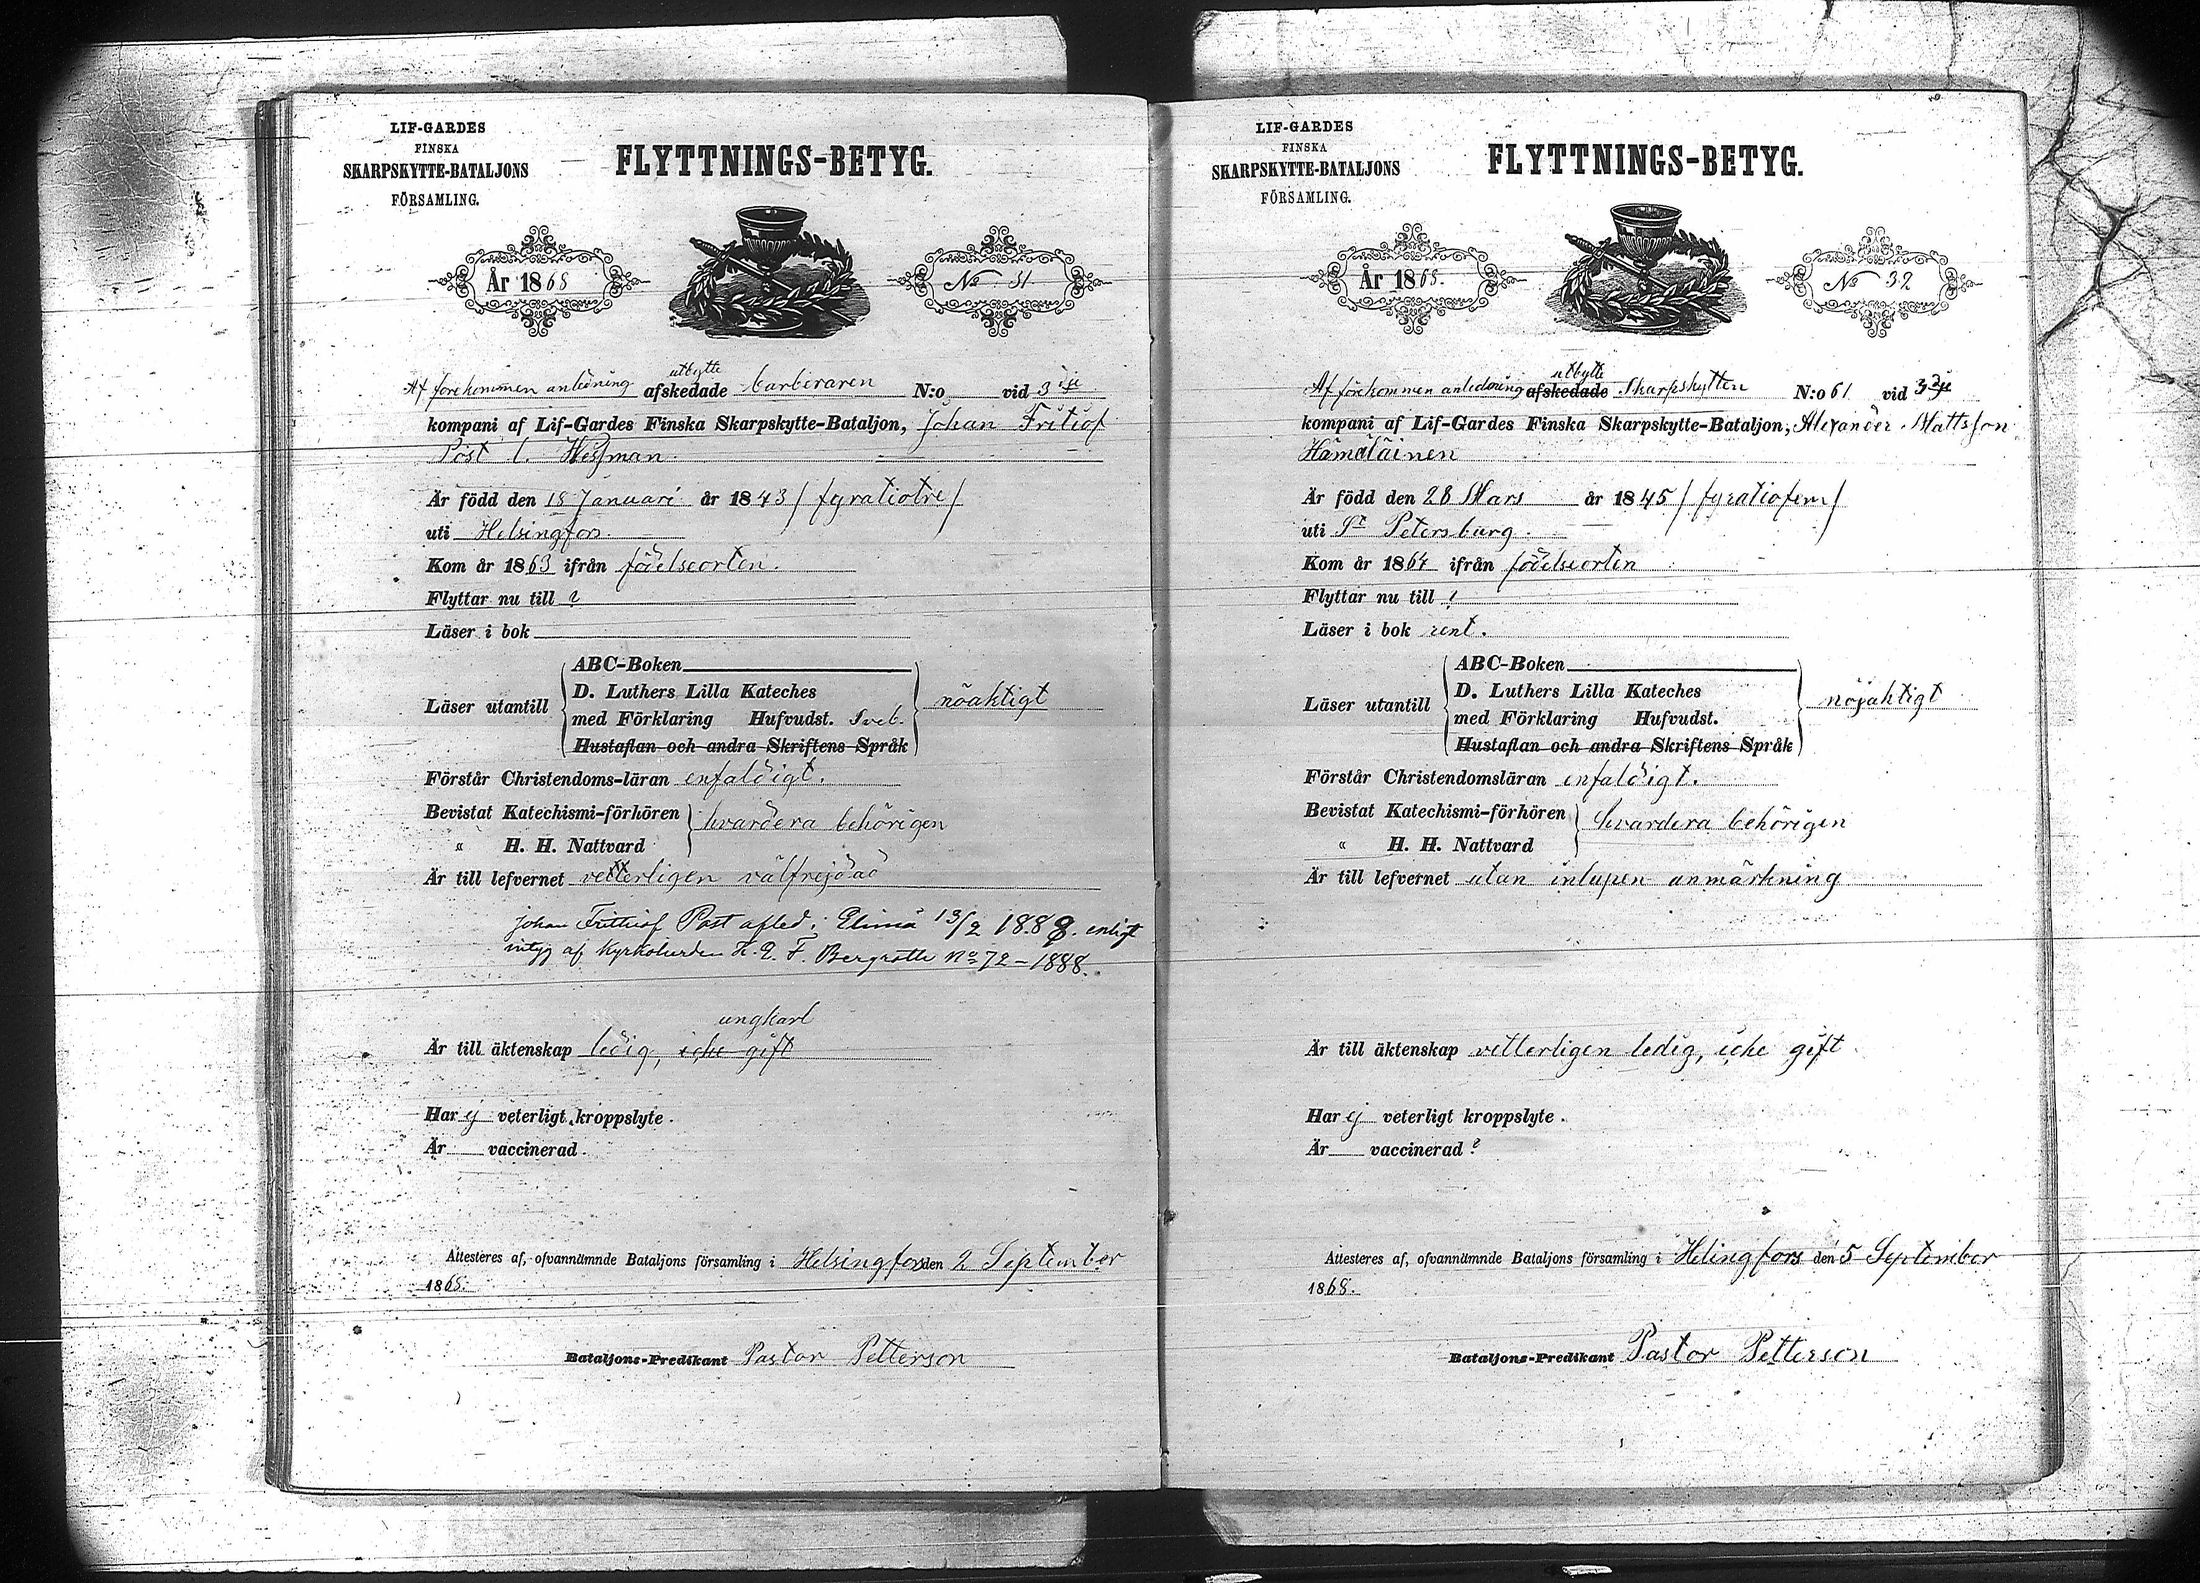 LIF-GARDES
FINSKA
SKARPSKYTTE-BATALJONS
FÖRSAMLING.
FLYTTNINGS-BETYG.
År 1868
No 31
utbytte
Af förekommen anledning afskedade barberaren N:o vid 3je
kompani af Lif-Gardes Finska Skarpskytte-Bataljon, Johan Fritiof
Post l. Westman.
Är född den 18 Januari år 1843 / fyratiotre /
uti Helsingfors.
Kom år 1863 ifrån födelseorten.
Flyttar nu till ?
Läser i bok
Läser utantill
ABC-Boken
D. Luthers Lilla Kateches
med Förklaring Hufvudst. Sveb.
Hustaflan och andra Skriftens Språk
nöaktigt
Förstår Christendoms-läran enfaldigt.
Bevistat Katechismi-förhören
" H. H. Nattvard
hvardera behörigen
Är till lefvernet vetterligen välfrejdad
Johan Frithiof Post afled i Elimä 13/2 1888. enligt
intyg af Kyrkoherden K. E. F. Bergroth No 72 – 1888.
ungkarl
Är till äktenskap ledig, icke gift
Har ej veterligt kroppslyte.
Är vaccinerad.
Attesteres af, ofvannämnde Bataljons församling i Helsingfors den 2 September
1868.
Bataljons-Predikant Pastor Petterson
LIF-GARDES
FINSKA
SKARPSKYTTE-BATALJONS
FÖRSAMLING.
FLYTTNINGS-BETYG.
År 1868.
No 32
utbytte
Af förekommen anledning afskedade Skarpskytten N:o 61 vid 3je
kompani af Lif-Gardes Finska Skarpskytte-Bataljon, Alexander Mattsson
Hämäläinen
Är född den 28 Mars år 1845 / fyratiofem /
uti St Petersburg.
Kom år 1864 ifrån födelseorten
Flyttar nu till ?
Läser i bok rent.
Läser utantill
ABC-Boken
D. Luthers Lilla Kateches
med Förklaring Hufvudst.
Hustaflan och andra Skriftens Språk
nöjaktigt
Förstår Christendomsläran enfaldigt.
Bevistat Katechismi-förhören
" H. H. Nattvard
hvardera behörigen
Är till lefvernet utan inlupen anmärkning
Är till äktenskap vetterligen ledig, icke gift
Har ej veterligt kroppslyte.
Är vaccinerad ?
Attesteres af, ofvannämnde Bataljons församling i Helingfors den 5 September
1868.
Bataljons-Predikant Pastor Petterson